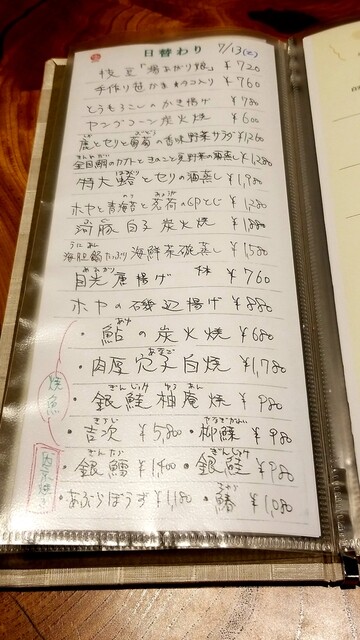 日替わり 7/13(土)
枝豆「湯あがり娘」 ¥720
手作り笹かま(キのコ入り) ¥760
とうもろこしのかき揚げ ¥780
ヤングコーン炭火焼 ¥600
とセリと葡萄の香味野菜サラダ ¥1,260
金目鯛のカブトときのこと夏野菜の酒蒸し ¥1,280
特大蛤とセリの酒蒸し ¥1,980
ホヤと青海苔と茗荷の ¥1,280
河豚白子炭火焼 ¥1,880
海胆鮹たっぷり海鮮茶碗蒸し ¥1,580
目光唐揚げ ¥760
ホヤの磯辺揚げ ¥880
・鮎の炭火焼 ¥680
・肉厚穴子白焼 ¥1,780
焼魚
・銀鮭柚庵焼 ¥980
・吉次 ¥5,800 ・柳鰈 ¥980
・銀鱈 ¥1,400 ・銀鮭 ¥980
・あぶらぼうず ¥1,180 ・鰆 ¥1,080